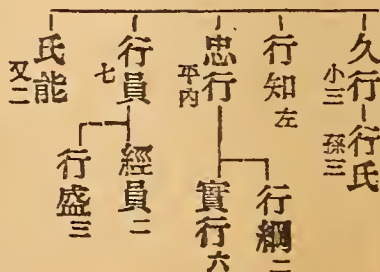 久行
小三
行氏
孫三
行知
左
忠行
平内
行綱
二
實行
六
行員
七
經員
二
行盛
三
氏能
又二